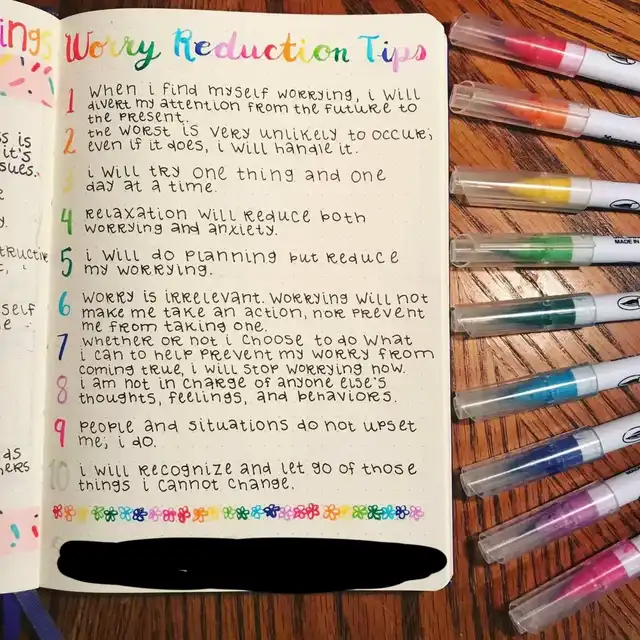 ings
Worry Reduction Tips
1 When i find myself worrying, i will
divert my attention from the future to
the present.
2 the worst is very unlikely to occur;
even if it does, i will handle it.
3 i will try one thing and one
day at a time.
4 relaxation will reduce both
worrying and anxiety.
5 i will do planning but reduce
my worrying.
6 worry is irrelevant. worrying will not
make me take an action, nor prevent
me from taking one.
7 whether or not i choose to do what
i can to help prevent my worry from
coming true, i will stop worrying now.
8 i am not in charge of anyone else's
thoughts, feelings, and behaviors.
9 people and situations do not upset
me; i do.
10 i will recognize and let go of those
things i cannot change.
ss is
it's
sues.
tructive
self
ds
hers
MADE IN